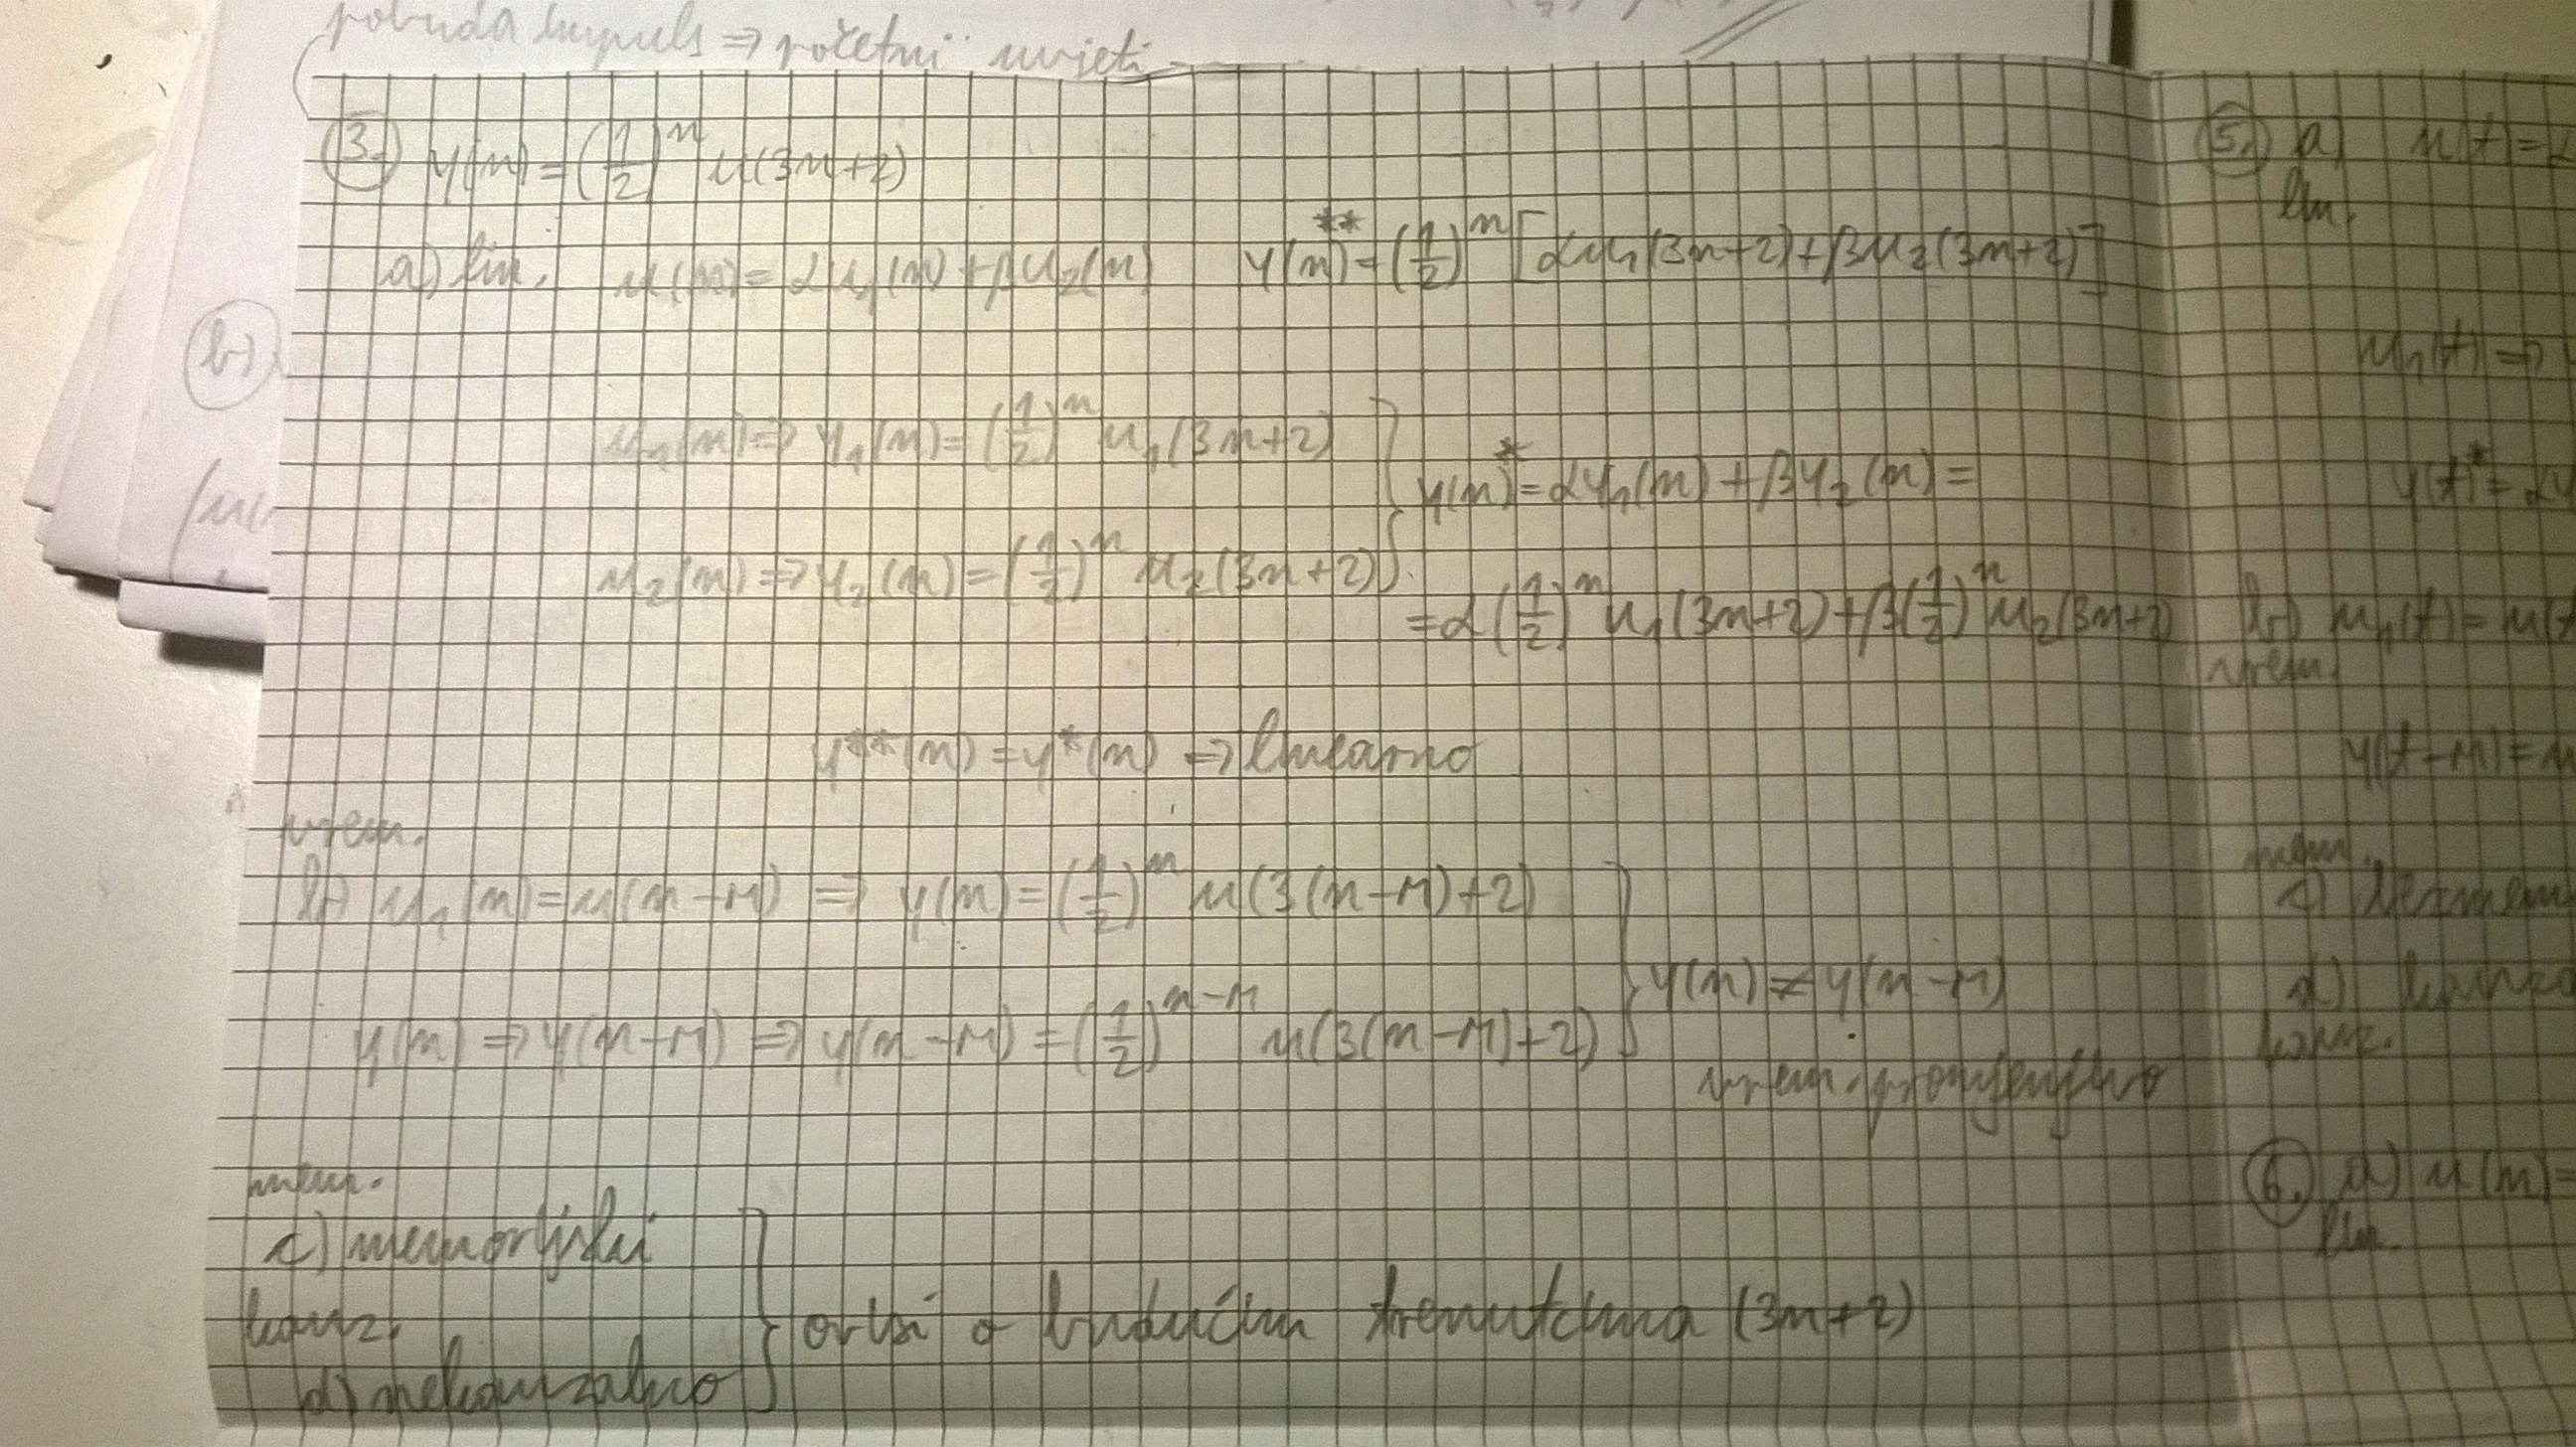 pobuda impuls ⇒ početni uvjeti
3. y(n) = (1/2)^n u(3n+2)
a) lin. u(n) = αu₁(n) + βu₂(n) y(n)** = (1/2)^n [αu₁(3n+2) + βu₂(3n+2)]
b)
u₁(n) ⇒ y₁(n) = (1/2)^n u₁(3n+2)
y(n)* = αy₁(n) + βy₂(n) =
u₂(n) ⇒ y₂(n) = (1/2)^n u₂(3n+2)
= α(1/2)^n u₁(3n+2) + β(1/2)^n u₂(3n+2)
y**(n) = y*(n) ⇒ linearno
vrem.
b) u₁(n) = u(n-M) ⇒ y(n) = (1/2)^n u(3(n-M)+2)
y(n) ≠ y(n-M)
y(n) ⇒ y(n-M) ⇒ y(n-M) = (1/2)^(n-M) u(3(n-M)+2)
vrem. promjenjivo
mem.
c) memorijski
kauz.
d) nekauzalno
ovisi o budućim trenutcima (3n+2)
5. a) u(t) = α
lin.
u₁(t) ⇒
y(t)* = αy
b) u₁(t) = u(t
vrem.
y(t-M) = u
mem.
c) bezmem
d) kauza
kauz.
6. a) u(n) =
lin.